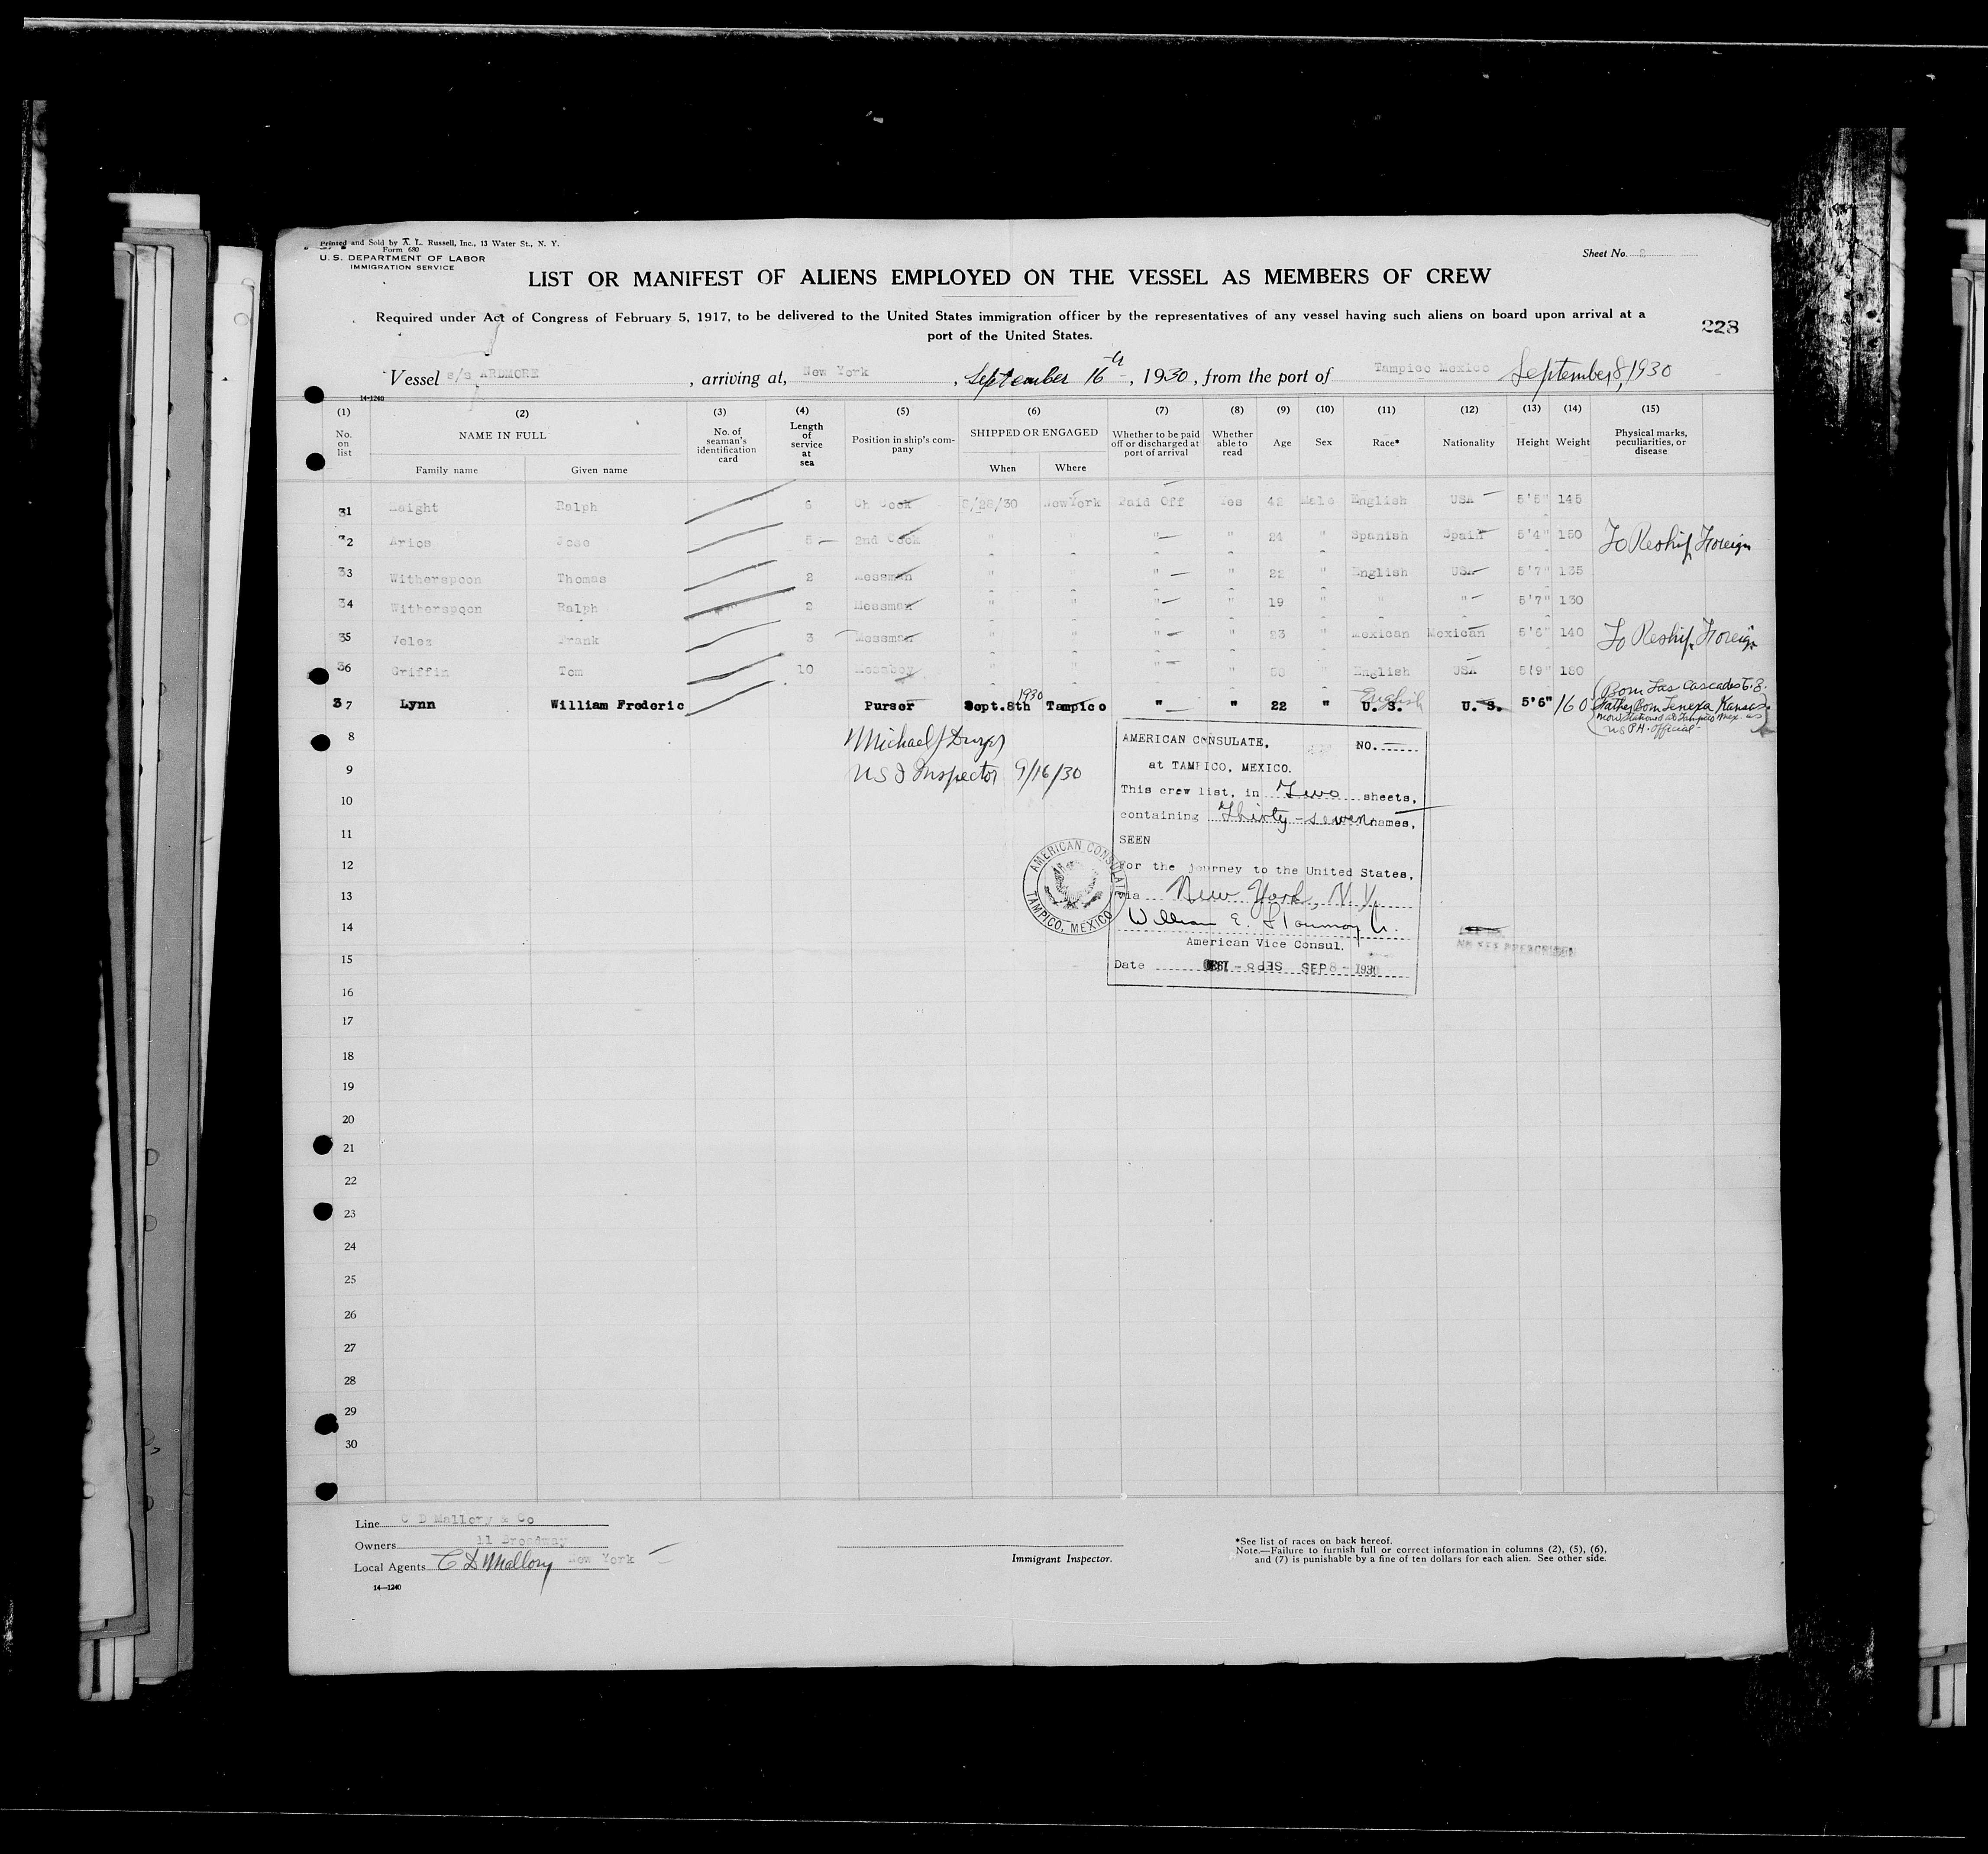 Printed and Sold by A. L. Russell, Inc., 13 Water St., N. Y.
Form 680
U. S. DEPARTMENT OF LABOR
IMMIGRATION SERVICE
Sheet No.
LIST OR MANIFEST OF ALIENS EMPLOYED ON THE VESSEL AS MEMBERS OF CREW
Required under Act of Congress of February 5, 1917, to be delivered to the United States immigration officer by the representatives of any vessel having such aliens on board upon arrival at a
port of the United States.
228
Vessel s/s ARDMORE , arriving at, New York , September 16th , 1930, from the port of Tampico Mexico September 8, 1930
14-1240
(1) (2) (3) (4) (5) (6) (7) (8) (9) (10) (11) (12) (13) (14) (15)
No. on list NAME IN FULL Family name Given name No. of seaman's identification card Length of service at sea Position in ship's company SHIPPED OR ENGAGED When Where Whether to be paid off or discharged at port of arrival Whether able to read Age Sex Race* Nationality Height Weight Physical marks, peculiarities, or disease
31 Haight Ralph 6 Ch Cook 8/28/30 NewYork Paid Off Yes 42 Male English USA 5'5" 145
32 Arios Jose 5 2nd Cook " " " " 24 " Spanish Spain 5'4" 150 To Reship Foreign
33 Witherspoon Thomas 2 Messman " " " " 22 " English USA 5'7" 135
34 Witherspoon Ralph 2 Messman " " " " 19 " " " 5'7" 130
35 Velez Frank 3 Messman " " " " 23 " Mexican Mexican 5'6" 140 To Reship Foreign
36 Griffin Tom 10 Messboy " " " " " English USA 5'9" 180
37 Lynn William Frederic Purser Sept.8th 1930 Tampico " " 22 " U. S. English U. S. 5'6" 160 Born Las Cascades C.Z.
Father Born Lenexa Kansas
now stationed at Tampico Mex. as
US P.H. Official
8 Michael J
9 US I Inspector 9/16/30
10
11
12
13
14
15
16
17
18
19
20
21
22
23
24
25
26
27
28
29
30
AMERICAN CONSULATE, NO.
at TAMPICO, MEXICO.
This crew list, in Two sheets,
containing Thirty-seven names,
SEEN
For the journey to the United States,
via New York, N. Y.
William E.
American Vice Consul.
Date SEP 8 - 1930
AMERICAN CONSULATE
TAMPICO, MEXICO
Line C D Mallory & Co
Owners 11 Broadway
Local Agents C D Mallory New York
14-1240
Immigrant Inspector.
*See list of races on back hereof.
Note.—Failure to furnish full or correct information in columns (2), (5), (6),
and (7) is punishable by a fine of ten dollars for each alien. See other side.